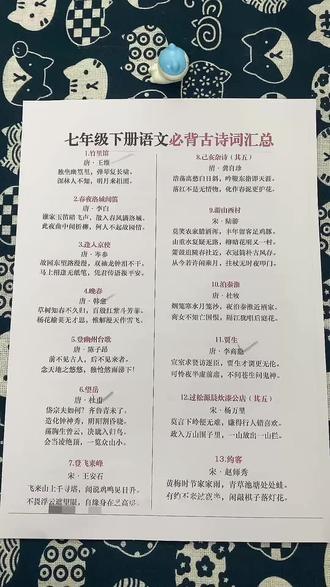 七年级下册语文必背古诗词汇总
1.竹里馆
唐·王维
独坐幽篁里，弹琴复长啸。
深林人不知，明月来相照。
2.春夜洛城闻笛
唐·李白
谁家玉笛暗飞声，散入春风满洛城。
此夜曲中闻折柳，何人不起故园情。
3.逢入京使
唐·岑参
故园东望路漫漫，双袖龙钟泪不干。
马上相逢无纸笔，凭君传语报平安。
4.晚春
唐·韩愈
草树知春不久归，百般红紫斗芳菲。
杨花榆荚无才思，惟解漫天作雪飞。
5.登幽州台歌
唐·陈子昂
前不见古人，后不见来者。
念天地之悠悠，独怆然而涕下！
6.望岳
唐·杜甫
岱宗夫如何？齐鲁青未了。
造化钟神秀，阴阳割昏晓。
荡胸生曾云，决眦入归鸟。
会当凌绝顶，一览众山小。
7.登飞来峰
宋·王安石
飞来山上千寻塔，闻说鸡鸣见日升。
不畏浮云遮望眼，自缘身在最高层。
8.己亥杂诗（其五）
清·龚自珍
浩荡离愁白日斜，吟鞭东指即天涯。
落红不是无情物，化作春泥更护花。
9.游山西村
宋·陆游
莫笑农家腊酒浑，丰年留客足鸡豚。
山重水复疑无路，柳暗花明又一村。
箫鼓追随春社近，衣冠简朴古风存。
从今若许闲乘月，拄杖无时夜叩门。
10.泊秦淮
唐·杜牧
烟笼寒水月笼沙，夜泊秦淮近酒家。
商女不知亡国恨，隔江犹唱后庭花。
11.贾生
唐·李商隐
宣室求贤访逐臣，贾生才调更无伦。
可怜夜半虚前席，不问苍生问鬼神。
12.过松源晨炊漆公店（其五）
宋·杨万里
莫言下岭便无难，赚得行人错喜欢。
政入万山围子里，一山放出一山拦。
13.约客
宋·赵师秀
黄梅时节家家雨，青草池塘处处蛙。
有约不来过夜半，闲敲棋子落灯花。